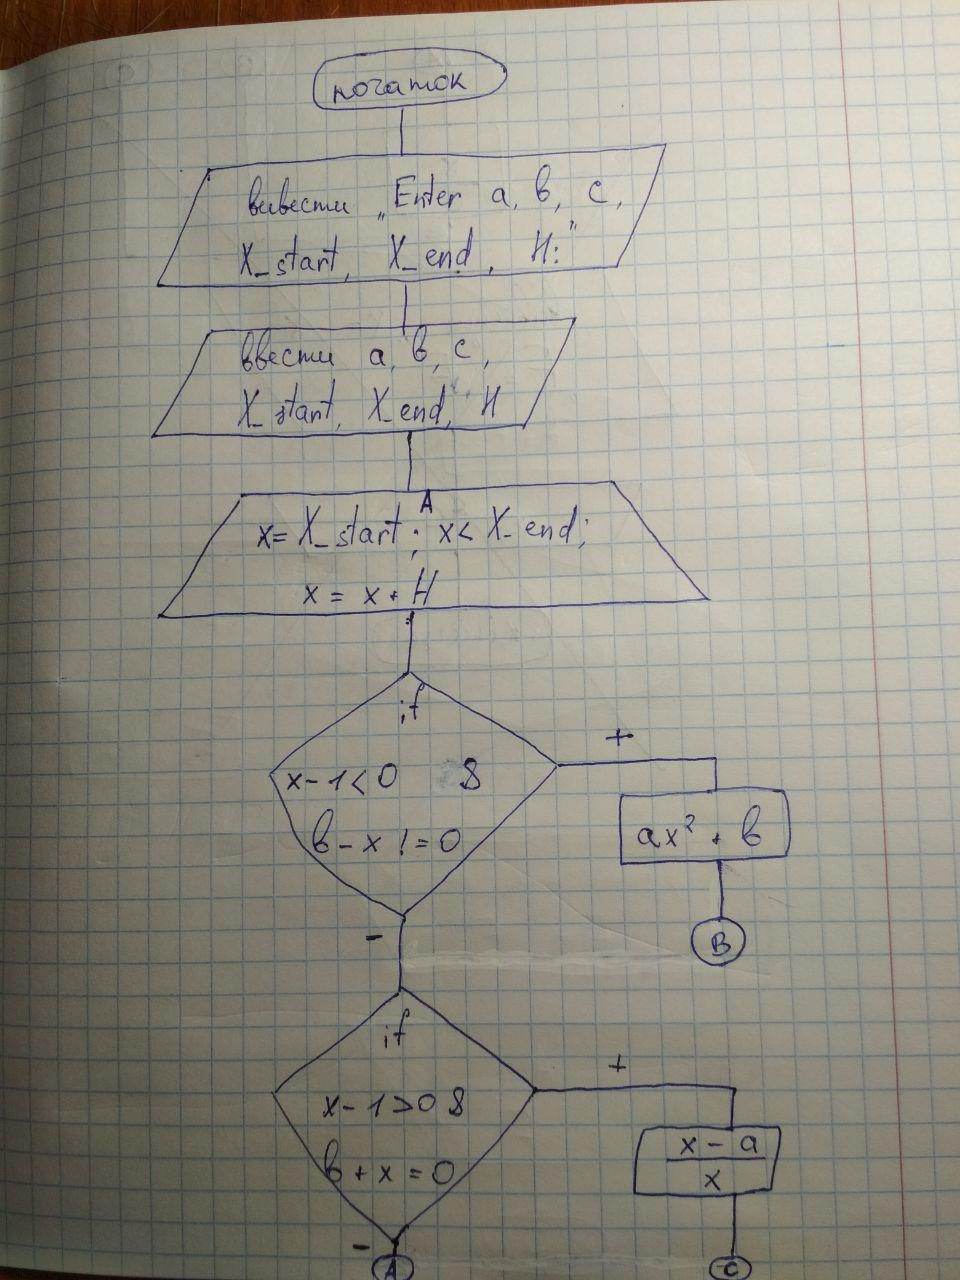 початок
вивести „Enter a, b, c,
X_start, X_end, H:"
ввести a, b, c,
X_start, X_end, H
A
x = X_start; x < X_end;
x = x + H
if
x - 1 < 0 &
b - x != 0
+
ax² + b
B
-
if
x - 1 > 0 &
b + x = 0
+
x - a
x
C
-
A